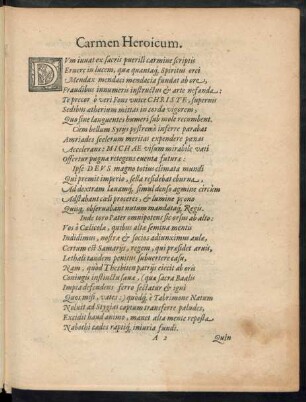 Carmen Heroicum.
DVm iuuat ex sacris puerili carmine scriptis
Eruere in lucem, quæ quantaq; Spiritus orci
Mendax mendaci mendacia fundat ab ore,
Fraudibus innumeris instructus & arte nefanda:
Te precor ô veri Fons vnice CHRISTE, supernis
Sedibus æthereum mittas in corda vigorem;
Quo sine languentes humeri sub mole recumbent.
Cum bellum Syrijs postremò inferre parabas
Amriades scelerum meritas expendere pœnas
Accelerans: MICHAE visum mirabile vati
Offertur pugnæ retegens euenta futuræ:
Ipse DEVS magno totius climata mundi
Qui premit imperio, sella residebat eburna,
Ad dextram læuamq;, simul denso agmine circùm
Adstabant cœli proceres, & lumine prono
Quisq; obseruabant nutum mandatáq; Regis.
Inde toro Pater omnipotens sic orsus ab alto:
Vos ô Cælicolæ, quibus alta semina mentis
Indidimus, nostra & socios adiunximus aula,
Certum est Samarijs, regem, qui præsidet aruis,
Lethali tandem penitus subuertere casu,
Nam, quòd Thesbiten patrijs eiecit ab oris
Coniugis insanientis iniquæ, (quæ sacra Baalis
Impia defendens ferro sectatur & igni
Quos misi, vates:) quodq; è Tabrimone Natum
Noluit ad Stygias captum transferre paludes,
Excidit haud animo, manet alta mente repôsta
Nabothi cædes raptiq; iniuria fundi.
A 2
Quin